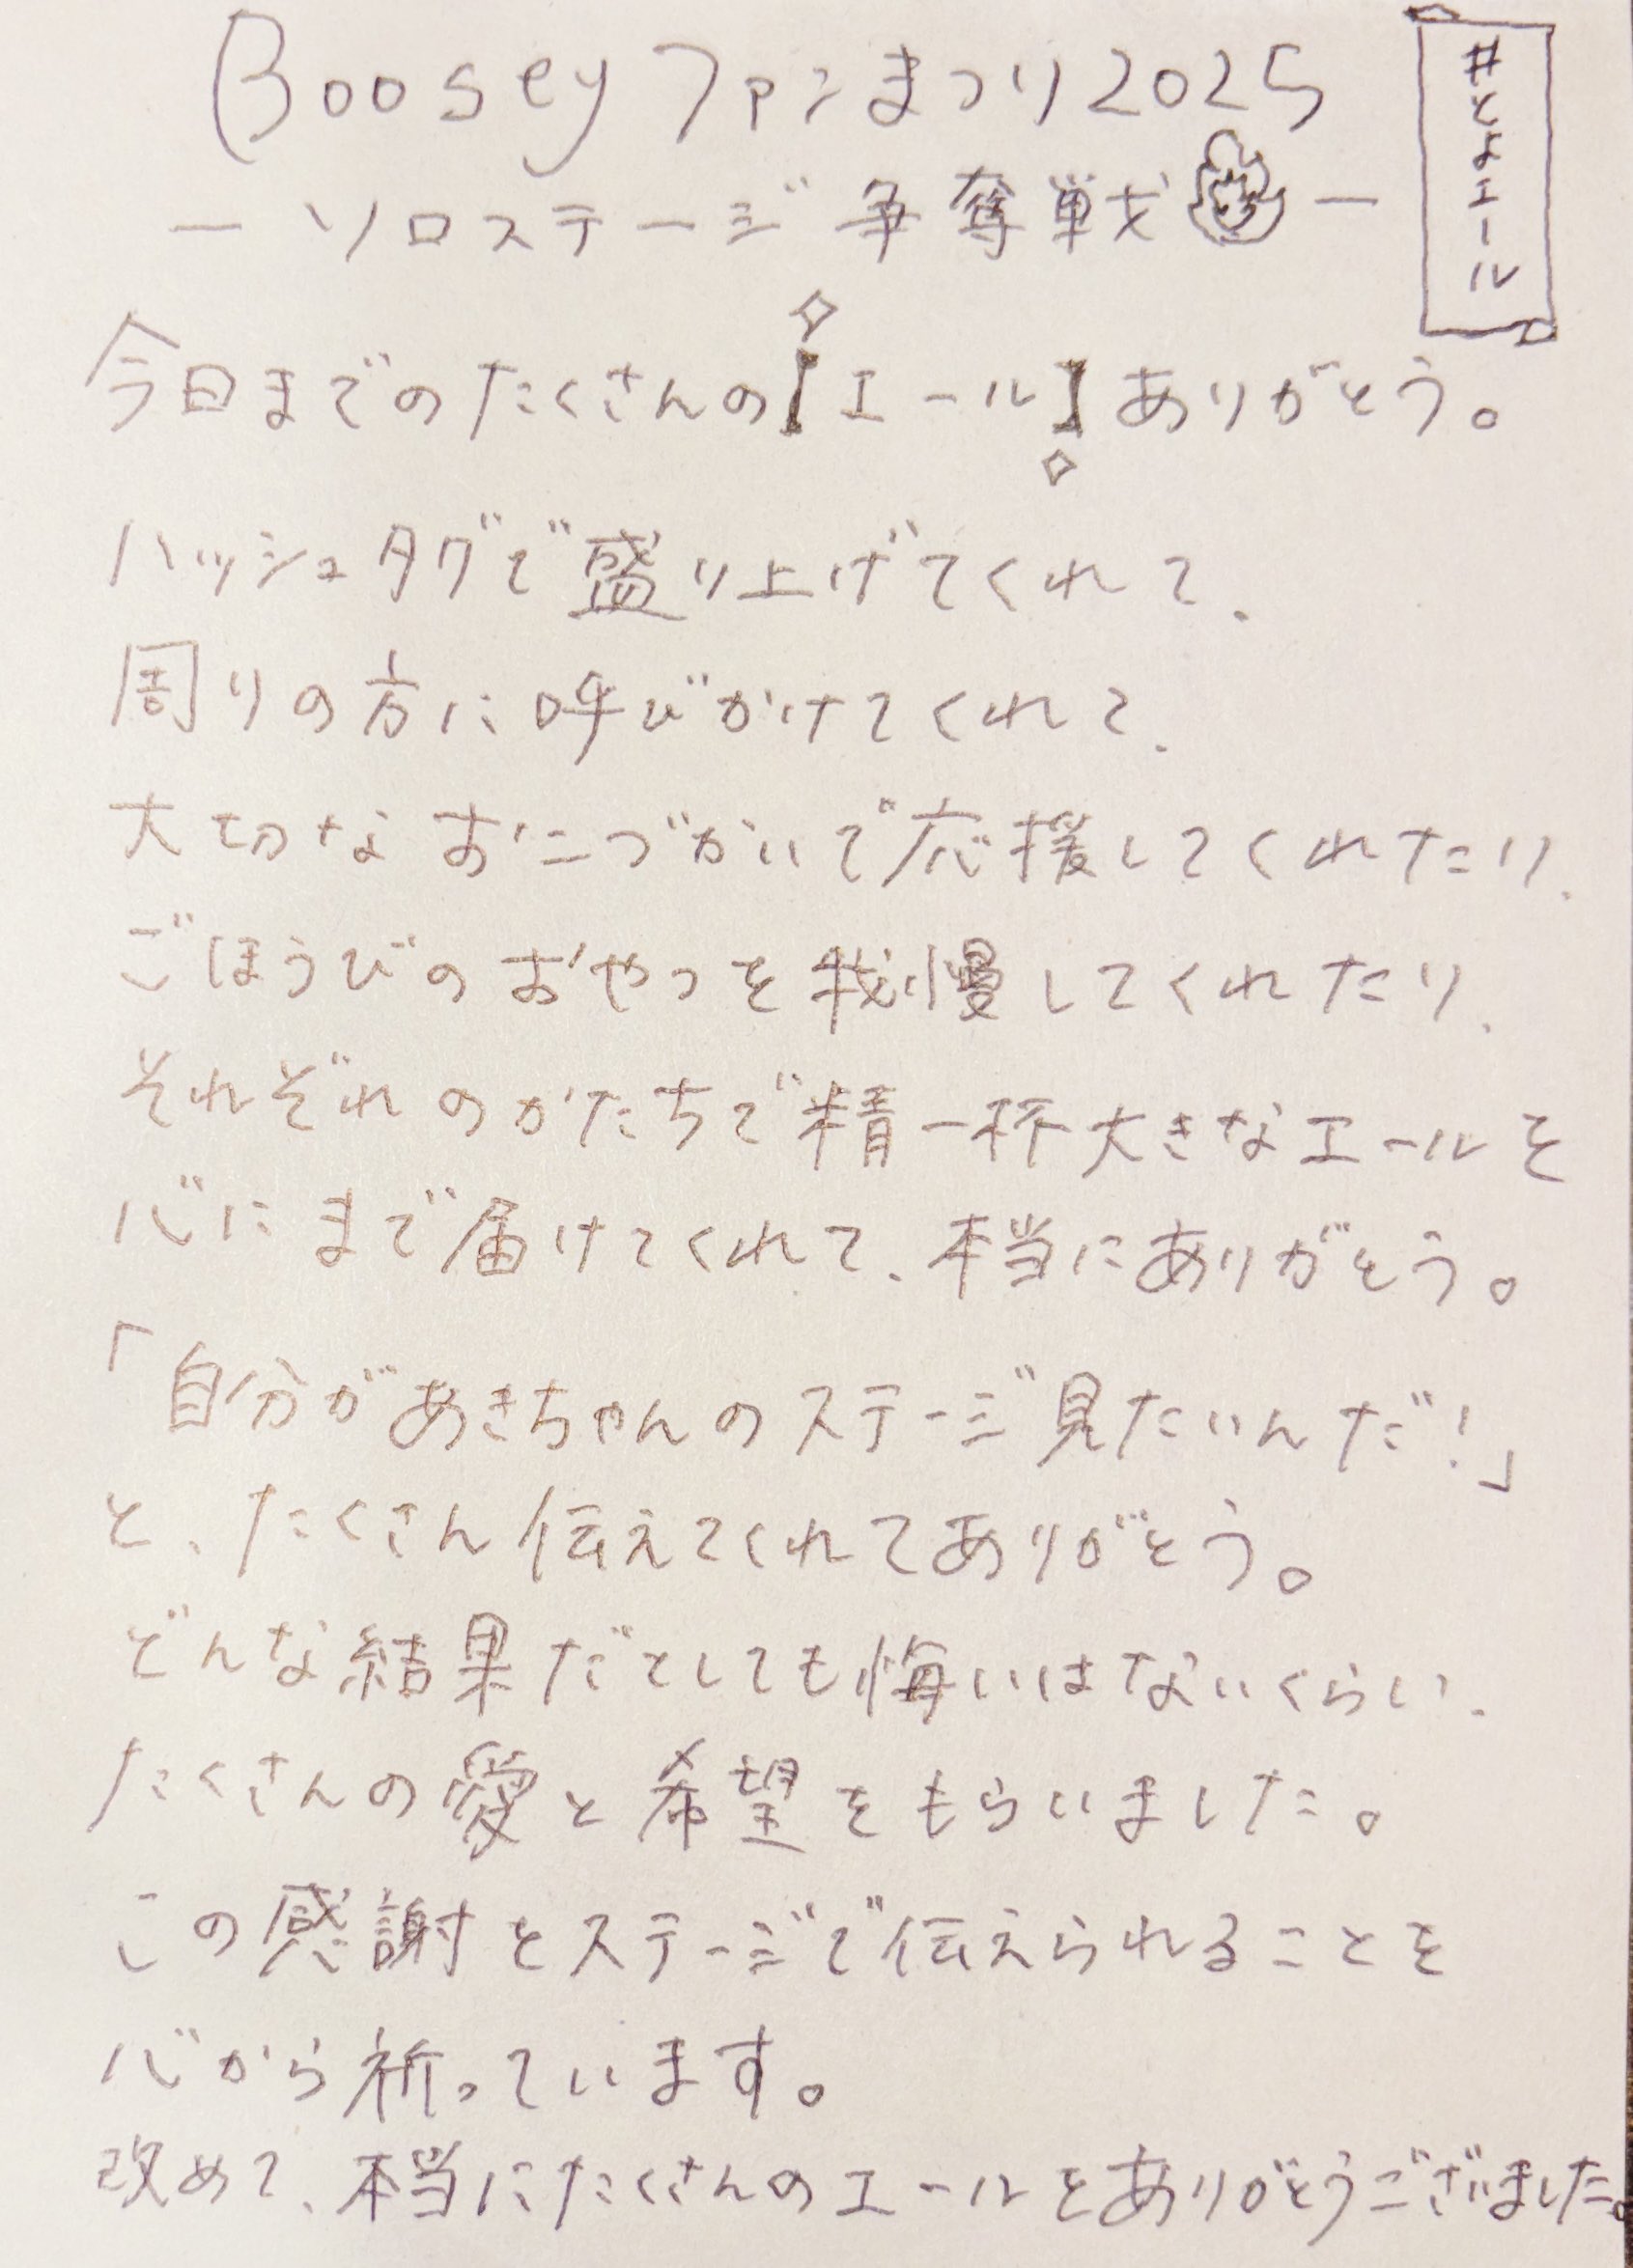 Booseyファンまつり2025
#とよエール
ーソロステージ争奪戦ー
今日までのたくさんの【エール】ありがとう。
ハッシュタグで盛り上げてくれて、
周りの方に呼びかけてくれて、
大切なおこづかいで応援してくれたり、
ごほうびのおやつを我慢してくれたり、
それぞれのかたちで精一杯大きなエールを
心にまで届けてくれて、本当にありがとう。
「自分があきちゃんのステージ見たいんだ!」
と、たくさん伝えてくれてありがとう。
どんな結果だとしても悔いはないくらい、
たくさんの愛と希望をもらいました。
この感謝をステージで伝えられることを
心から祈っています。
改めて、本当にたくさんのエールをありがとうございました。